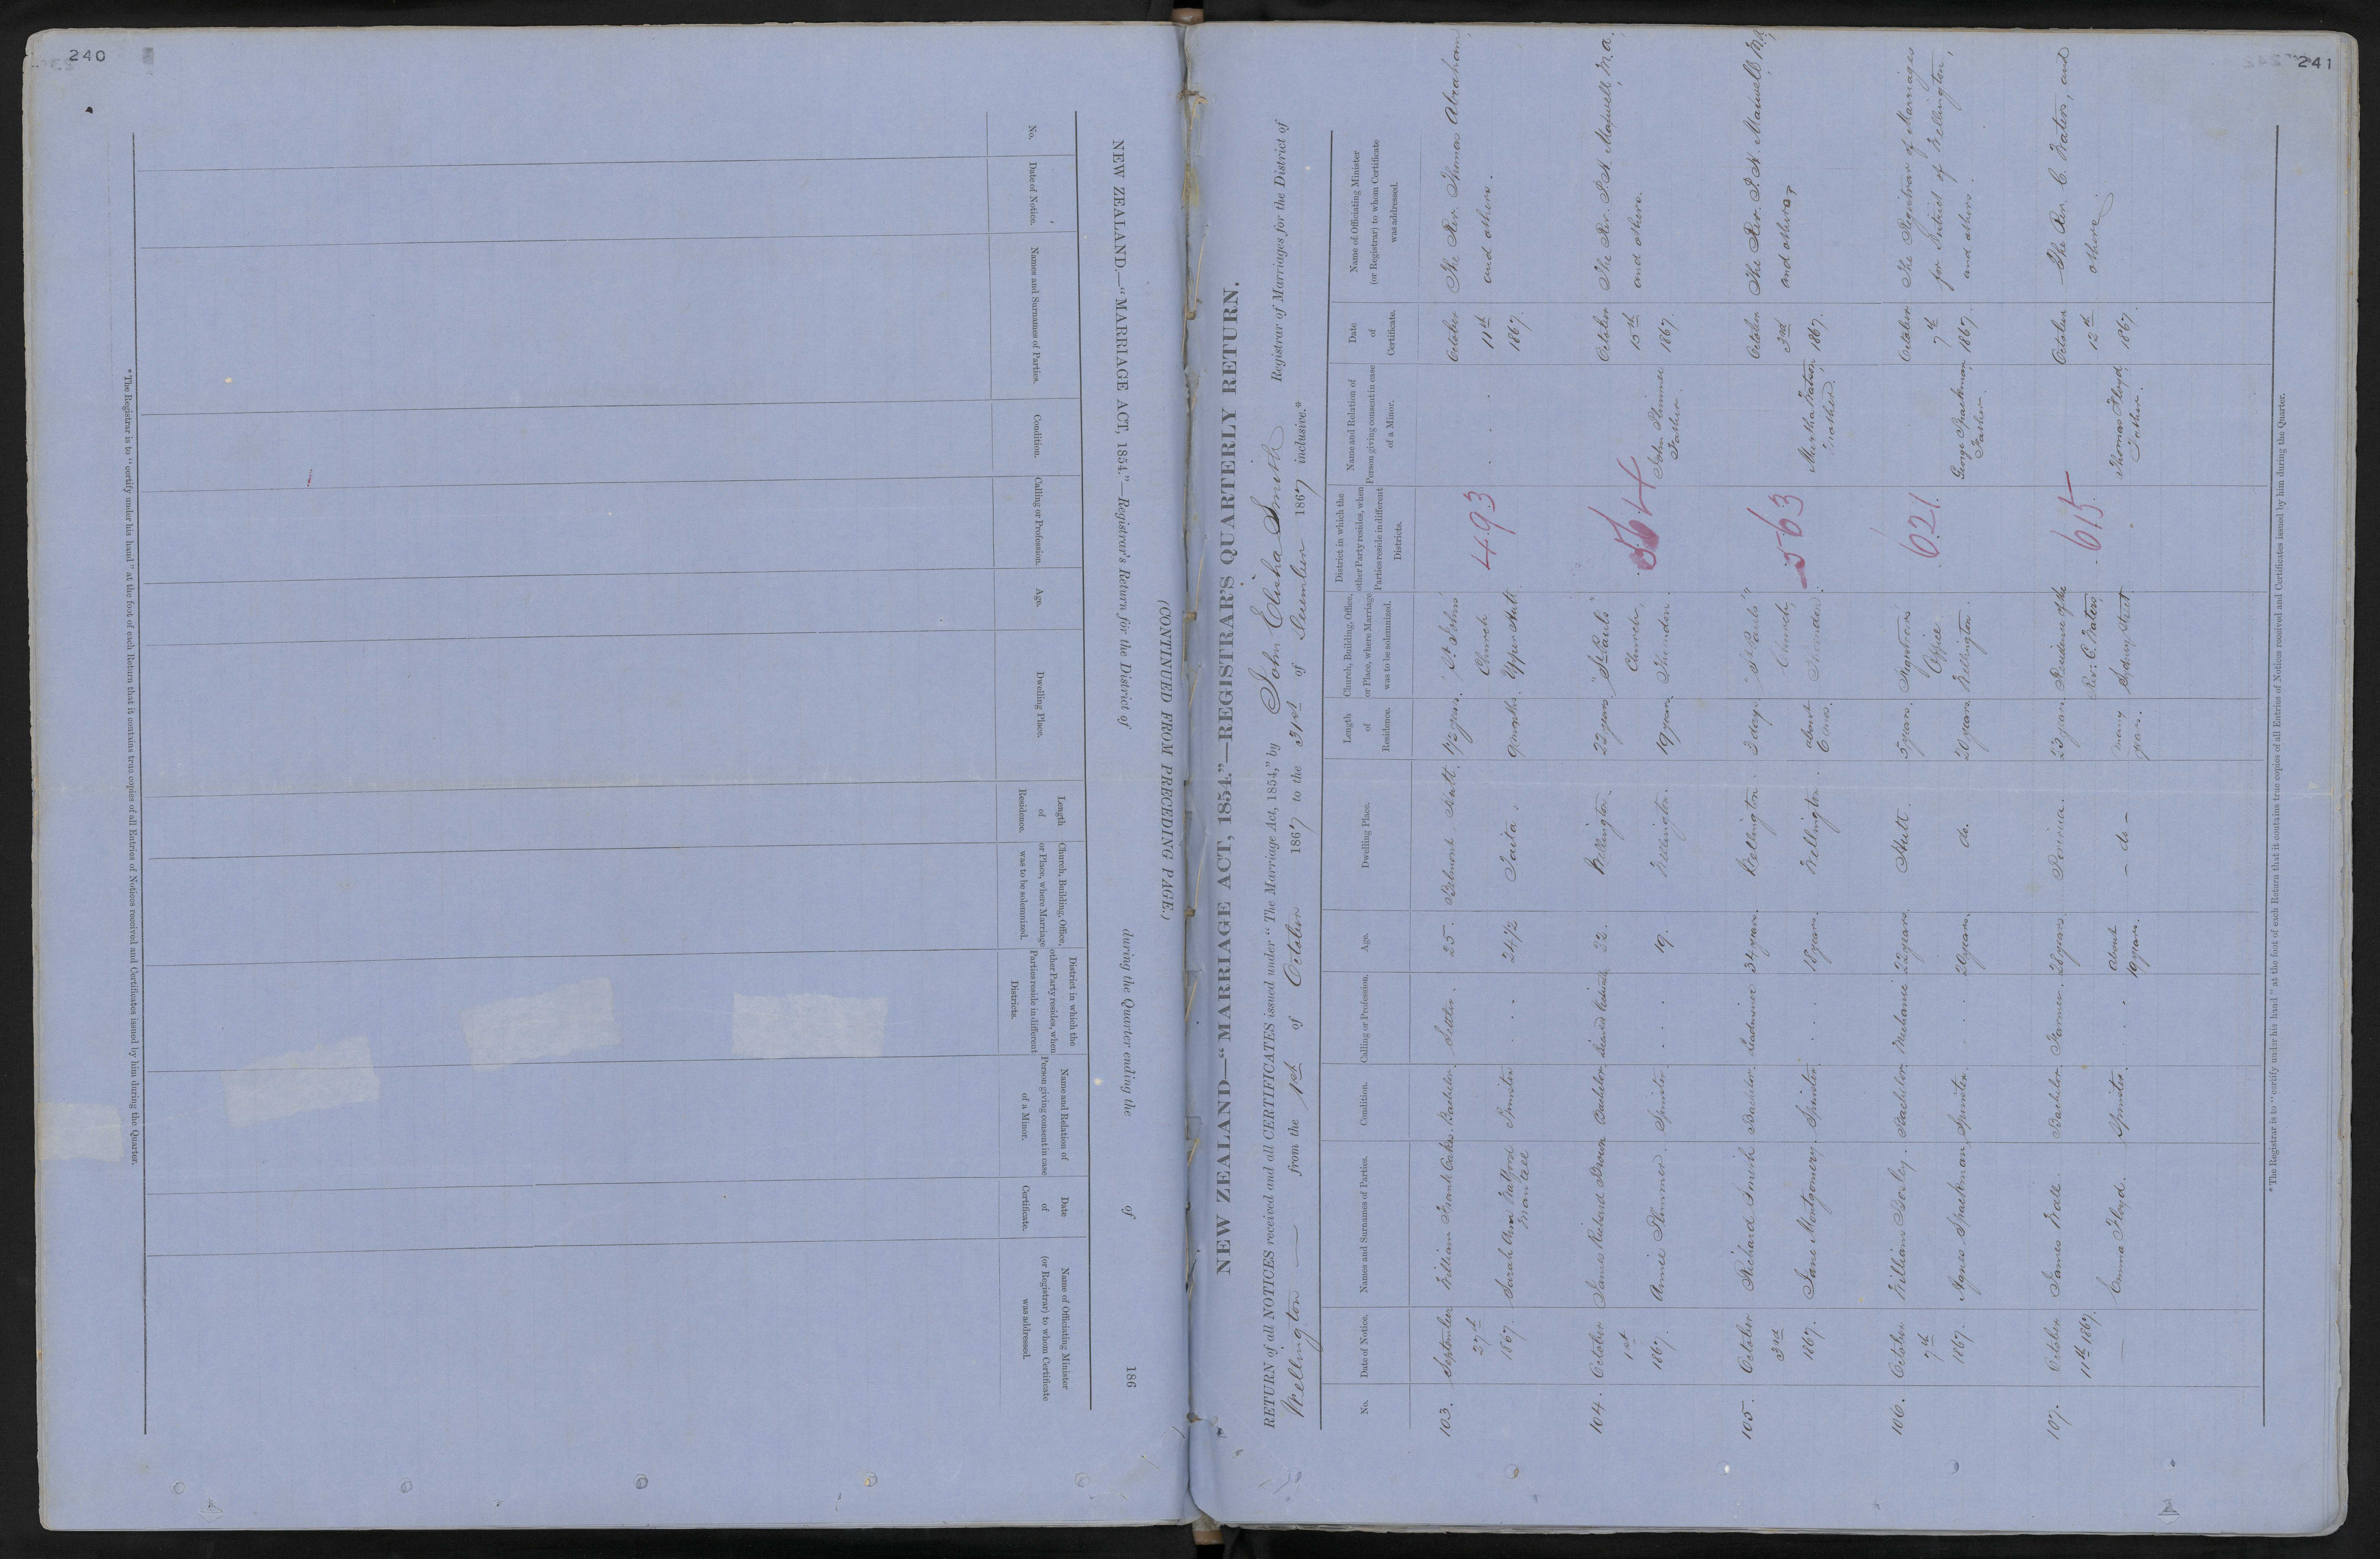 240
NEW ZEALAND.—"MARRIAGE ACT, 1854."—Registrar's Return for the District of during the Quarter ending the of 186
(CONTINUED FROM PRECEDING PAGE.)
No.
Date of Notice.
Names and Surnames of Parties.
Condition.
Calling or Profession.
Age.
Dwelling Place.
Length
of
Residence.
Church, Building, Office,
or Place, where Marriage
was to be solemnized.
District in which the
other Party resides, when
Parties reside in different
Districts.
Name and Relation of
Person giving consent in case
of a Minor.
Date
of
Certificate.
Name of Officiating Minister
(or Registrar) to whom Certificate
was addressed.
*The Registrar is to "certify under his hand" at the foot of each Return that it contains true copies of all Entries of Notices received and Certificates issued by him during the Quarter.
241
NEW ZEALAND—"MARRIAGE ACT, 1854."—REGISTRAR'S QUARTERLY RETURN.
RETURN of all NOTICES received and all CERTIFICATES issued under "The Marriage Act, 1854," by John Elisha Smith Registrar of Marriages for the District of
Wellington — from the 1st of October 1867 to the 31st of December 1867 inclusive.*
No.
Date of Notice.
Names and Surnames of Parties.
Condition.
Calling or Profession.
Age.
Dwelling Place.
Length
of
Residence.
Church, Building, Office,
or Place, where Marriage
was to be solemnized.
District in which the
other Party resides, when
Parties reside in different
Districts.
Name and Relation of
Person giving consent in case
of a Minor.
Date
of
Certificate.
Name of Officiating Minister
(or Registrar) to whom Certificate
was addressed.
103.
September
27th
1867.
William Frank Oakes
Sarah Ann Watford
Mantell
Bachelor
Spinster
Settler
25.
24 1/2
Belmont Hutt.
Taita.
1 1/2 years.
9 months.
St Johns
Church
Upper Hutt
493
October
11th
1867.
The Rev. Thomas Abraham,
and others.
104.
October
1st
1867.
James Richard Brown
Annie Plimmer.
Bachelor
Spinster
22.
19.
Wellington.
Wellington.
22 years
19 years
"St Pauls"
Church,
Thorndon.
564
John Plimmer
Father.
October
15th
1867.
The Rev. P. H. Maxwell, M.a.,
and others.
105.
October
3rd
1867.
Richard Smith
Jane Montgomery.
Bachelor
Spinster
34 years.
18 years.
Wellington.
Wellington.
3 days.
about
6 mos.
"St Pauls"
Church,
Thorndon.
563
Martha Watson
Mother.
October
3rd
1867.
The Rev. P. H. Maxwell, M.a.,
and others.
106.
October
7th
1867.
William Bosley.
Agnes Spackman
Bachelor
Spinster
Mechanic
22 years.
20 years.
Hutt.
do.
5 years.
20 years.
Registrars
Office
Wellington.
621.
George Spackman
Father.
October
7th
1867.
The Registrar of Marriages
for District of Wellington,
and others.
107.
October
11th 1867.
James Wall.
Emma Floyd.
Bachelor
Spinster
Farmer.
23 years.
About
19 years.
Porirua.
— do —
23 years.
many
years.
Residence of the
Rev: C. Waters
Sydney Street
615
Thomas Floyd
Father.
October
12th
1867.
The Rev. C. Waters, and
others.
*The Registrar is to "certify under his hand" at the foot of each Return that it contains true copies of all Entries of Notices received and Certificates issued by him during the Quarter.